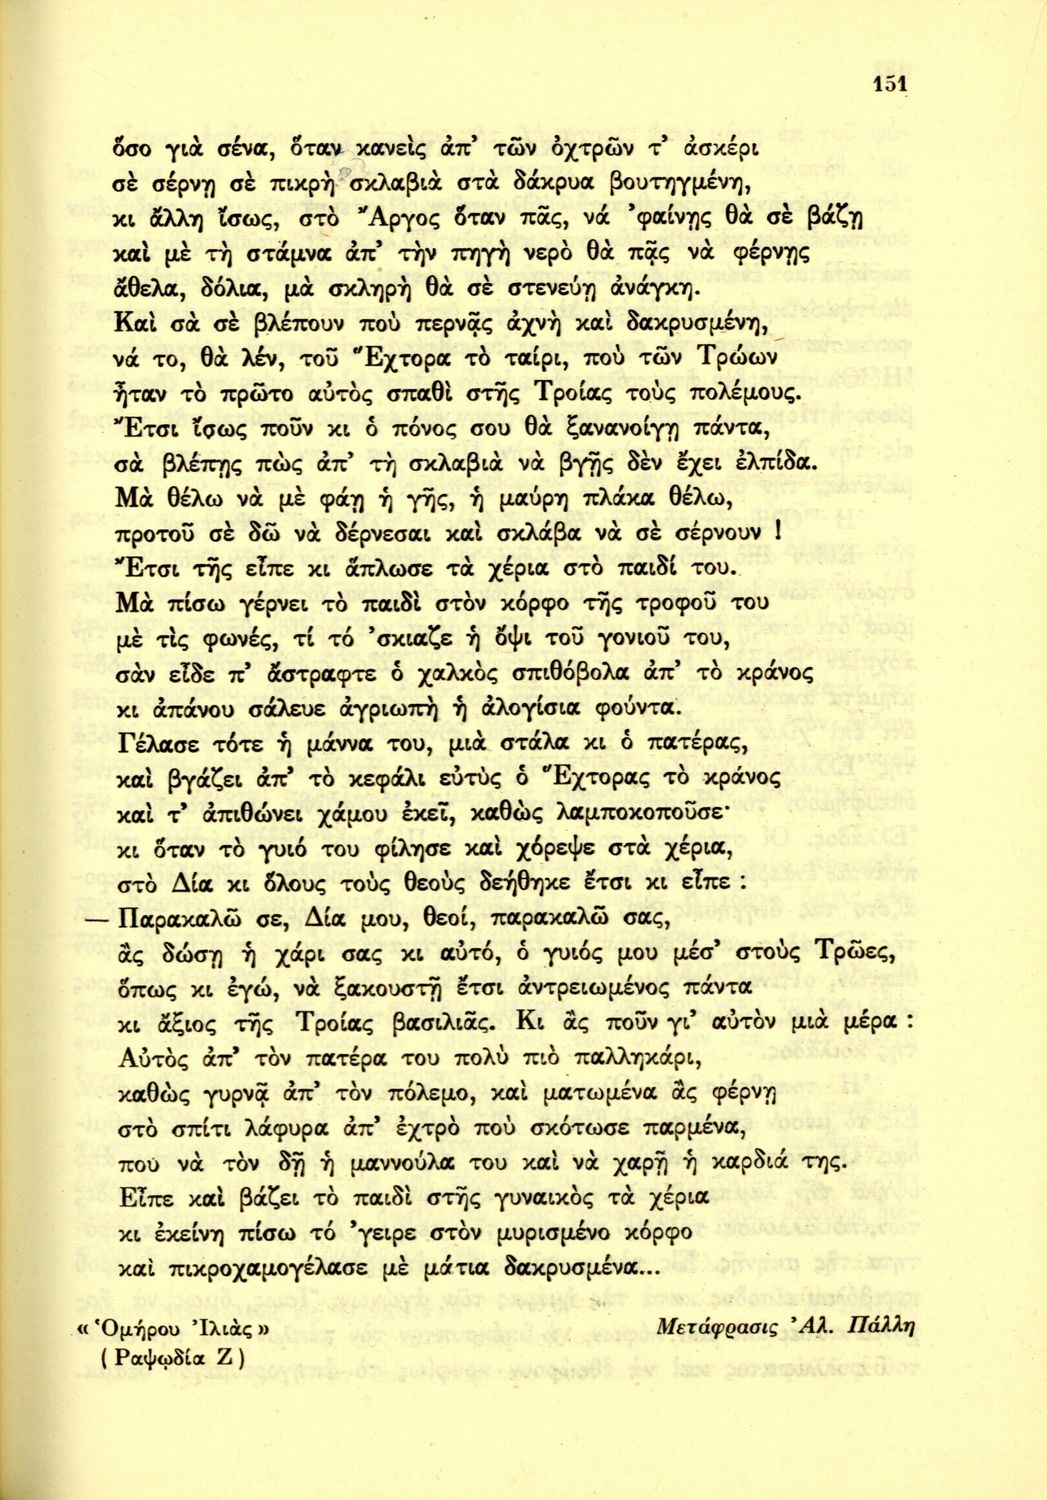 151
ὅσο γιὰ σένα, ὅταν κανεὶς ἀπ’ τῶν ὀχτρῶν τ’ ἀσκέρι
σὲ σέρνῃ σὲ πικρὴ σκλαβιὰ στὰ δάκρυα βουτηγμένη,
κι ἄλλη ἴσως, στὸ Ἄργος ὅταν πᾶς, νά ’φαίνῃς θὰ σὲ βάζῃ
καὶ μὲ τὴ στάμνα ἀπ’ τὴν πηγὴ νερὸ θὰ πᾷς νὰ φέρνῃς
ἄθελα, δόλια, μὰ σκληρὴ θὰ σὲ στενεύῃ ἀνάγκη.
Καὶ σὰ σὲ βλέπουν ποὺ περνᾷς ἀχνὴ καὶ δακρυσμένη,
νά το, θὰ λέν, τοῦ Ἕχτορα τὸ ταίρι, ποὺ τῶν Τρώων
ἦταν τὸ πρῶτο αὐτὸς σπαθὶ στῆς Τροίας τοὺς πολέμους.
Ἔτσι ἴσως ποῦν κι ὁ πόνος σου θὰ ξανανοίγῃ πάντα,
σὰ βλέπῃς πὼς ἀπ’ τὴ σκλαβιὰ νὰ βγῇς δὲν ἔχει ἐλπίδα.
Μὰ θέλω νὰ μὲ φάῃ ἡ γῆς, ἡ μαύρη πλάκα θέλω,
προτοῦ σὲ δῶ νὰ δέρνεσαι καὶ σκλάβα νὰ σὲ σέρνουν !
Ἔτσι τῆς εἶπε κι ἅπλωσε τὰ χέρια στὸ παιδί του.
Μὰ πίσω γέρνει τὸ παιδὶ στὸν κόρφο τῆς τροφοῦ του
μὲ τὶς φωνές, τί τό ’σκιαζε ἡ ὄψι τοῦ γονιοῦ του,
σὰν εἶδε π’ ἄστραφτε ὁ χαλκὸς σπιθόβολα ἀπ’ τὸ κράνος
κι ἀπάνου σάλευε ἀγριωπὴ ἡ ἀλογίσια φούντα.
Γέλασε τότε ἡ μάννα του, μιὰ στάλα κι ὁ πατέρας,
καὶ βγάζει ἀπ’ τὸ κεφάλι εὐτὺς ὁ Ἕχτορας τὸ κράνος
καὶ τ’ ἀπιθώνει χάμου ἐκεῖ, καθὼς λαμποκοποῦσε·
κι ὅταν τὸ γυιό του φίλησε καὶ χόρεψε στὰ χέρια,
στὸ Δία κι ὅλους τοὺς θεοὺς δεήθηκε ἔτσι κι εἶπε :
— Παρακαλῶ σε, Δία μου, θεοί, παρακαλῶ σας,
ἂς δώσῃ ἡ χάρι σας κι αὐτό, ὁ γυιός μου μέσ’ στοὺς Τρῶες,
ὅπως κι ἐγώ, νὰ ξακουστῇ ἔτσι ἀντρειωμένος πάντα
κι ἄξιος τῆς Τροίας βασιλιᾶς. Κι ἂς ποῦν γι’ αὐτὸν μιὰ μέρα :
Αὐτὸς ἀπ’ τὸν πατέρα του πολὺ πιὸ παλληκάρι,
καθὼς γυρνᾷ ἀπ’ τὸν πόλεμο, καὶ ματωμένα ἂς φέρνῃ
στὸ σπίτι λάφυρα ἀπ’ ἐχτρὸ ποὺ σκότωσε παρμένα,
που νὰ τὸν δῇ ἡ μαννούλα του καὶ νὰ χαρῇ ἡ καρδιά της.
Εἶπε καὶ βάζει τὸ παιδὶ στῆς γυναικὸς τὰ χέρια
κι ἐκείνη πίσω τό ’γειρε στὸν μυρισμένο κόρφο
καὶ πικροχαμογέλασε μὲ μάτια δακρυσμένα...
« Ὁμήρου Ἰλιὰς » Μετάφρασις Ἀλ. Πάλλη
( Ραψῳδία Ζ )